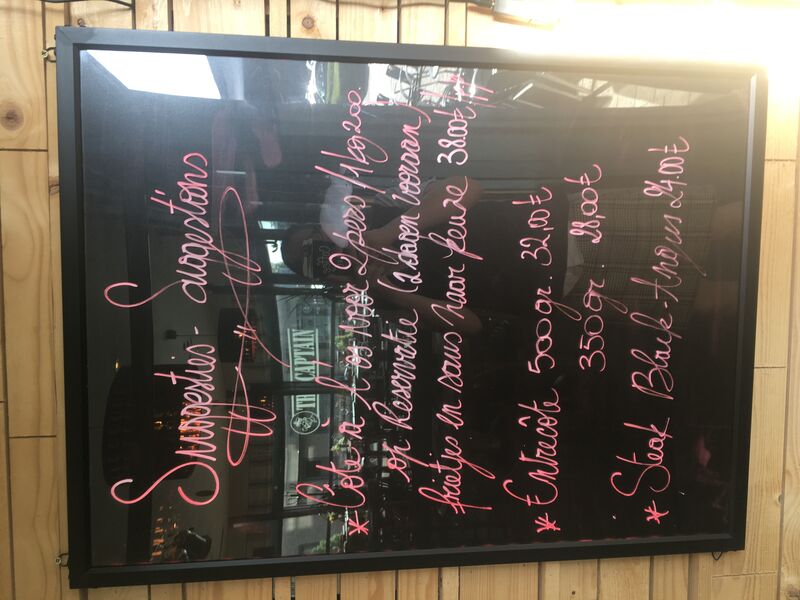 Suggesties - Suggestions
* Côte à l'os voor 2 pers / 1kg200.
op Reservatie (2 dagen vooraan)
frietjes en saus naar keuze 38.00€ /p
* Entrecôte 500gr. 32,00€
350gr. 28,00€
* Steak Black-Angus 24.00€
THE CAPTAIN